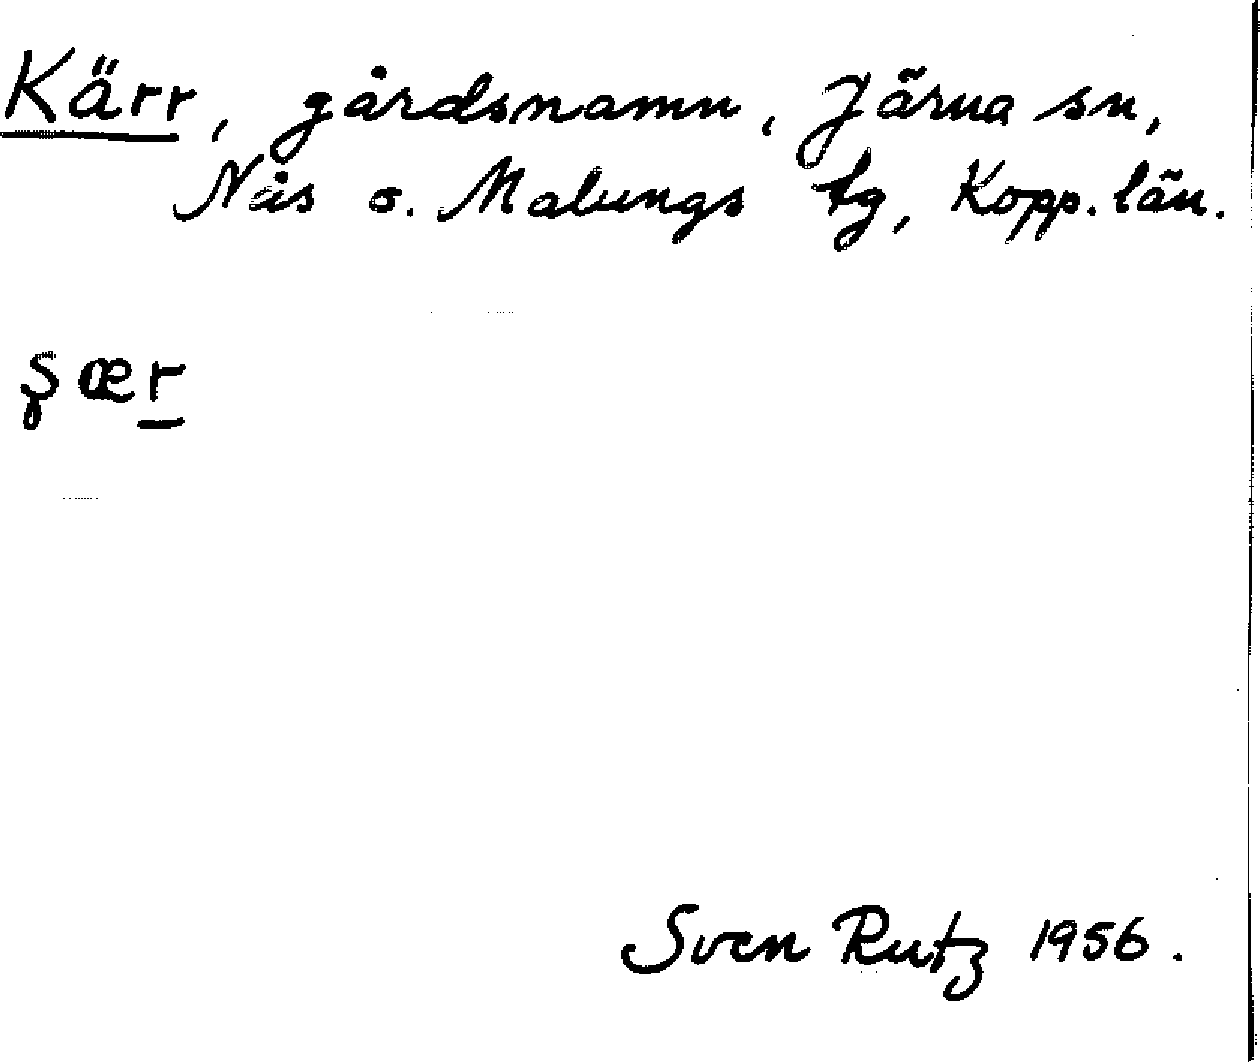 Kärr, gårdsnamn, Järna sn,
Nås o. Malungs tg, Kopp. län.
ʂær
Sven Rutz 1956.